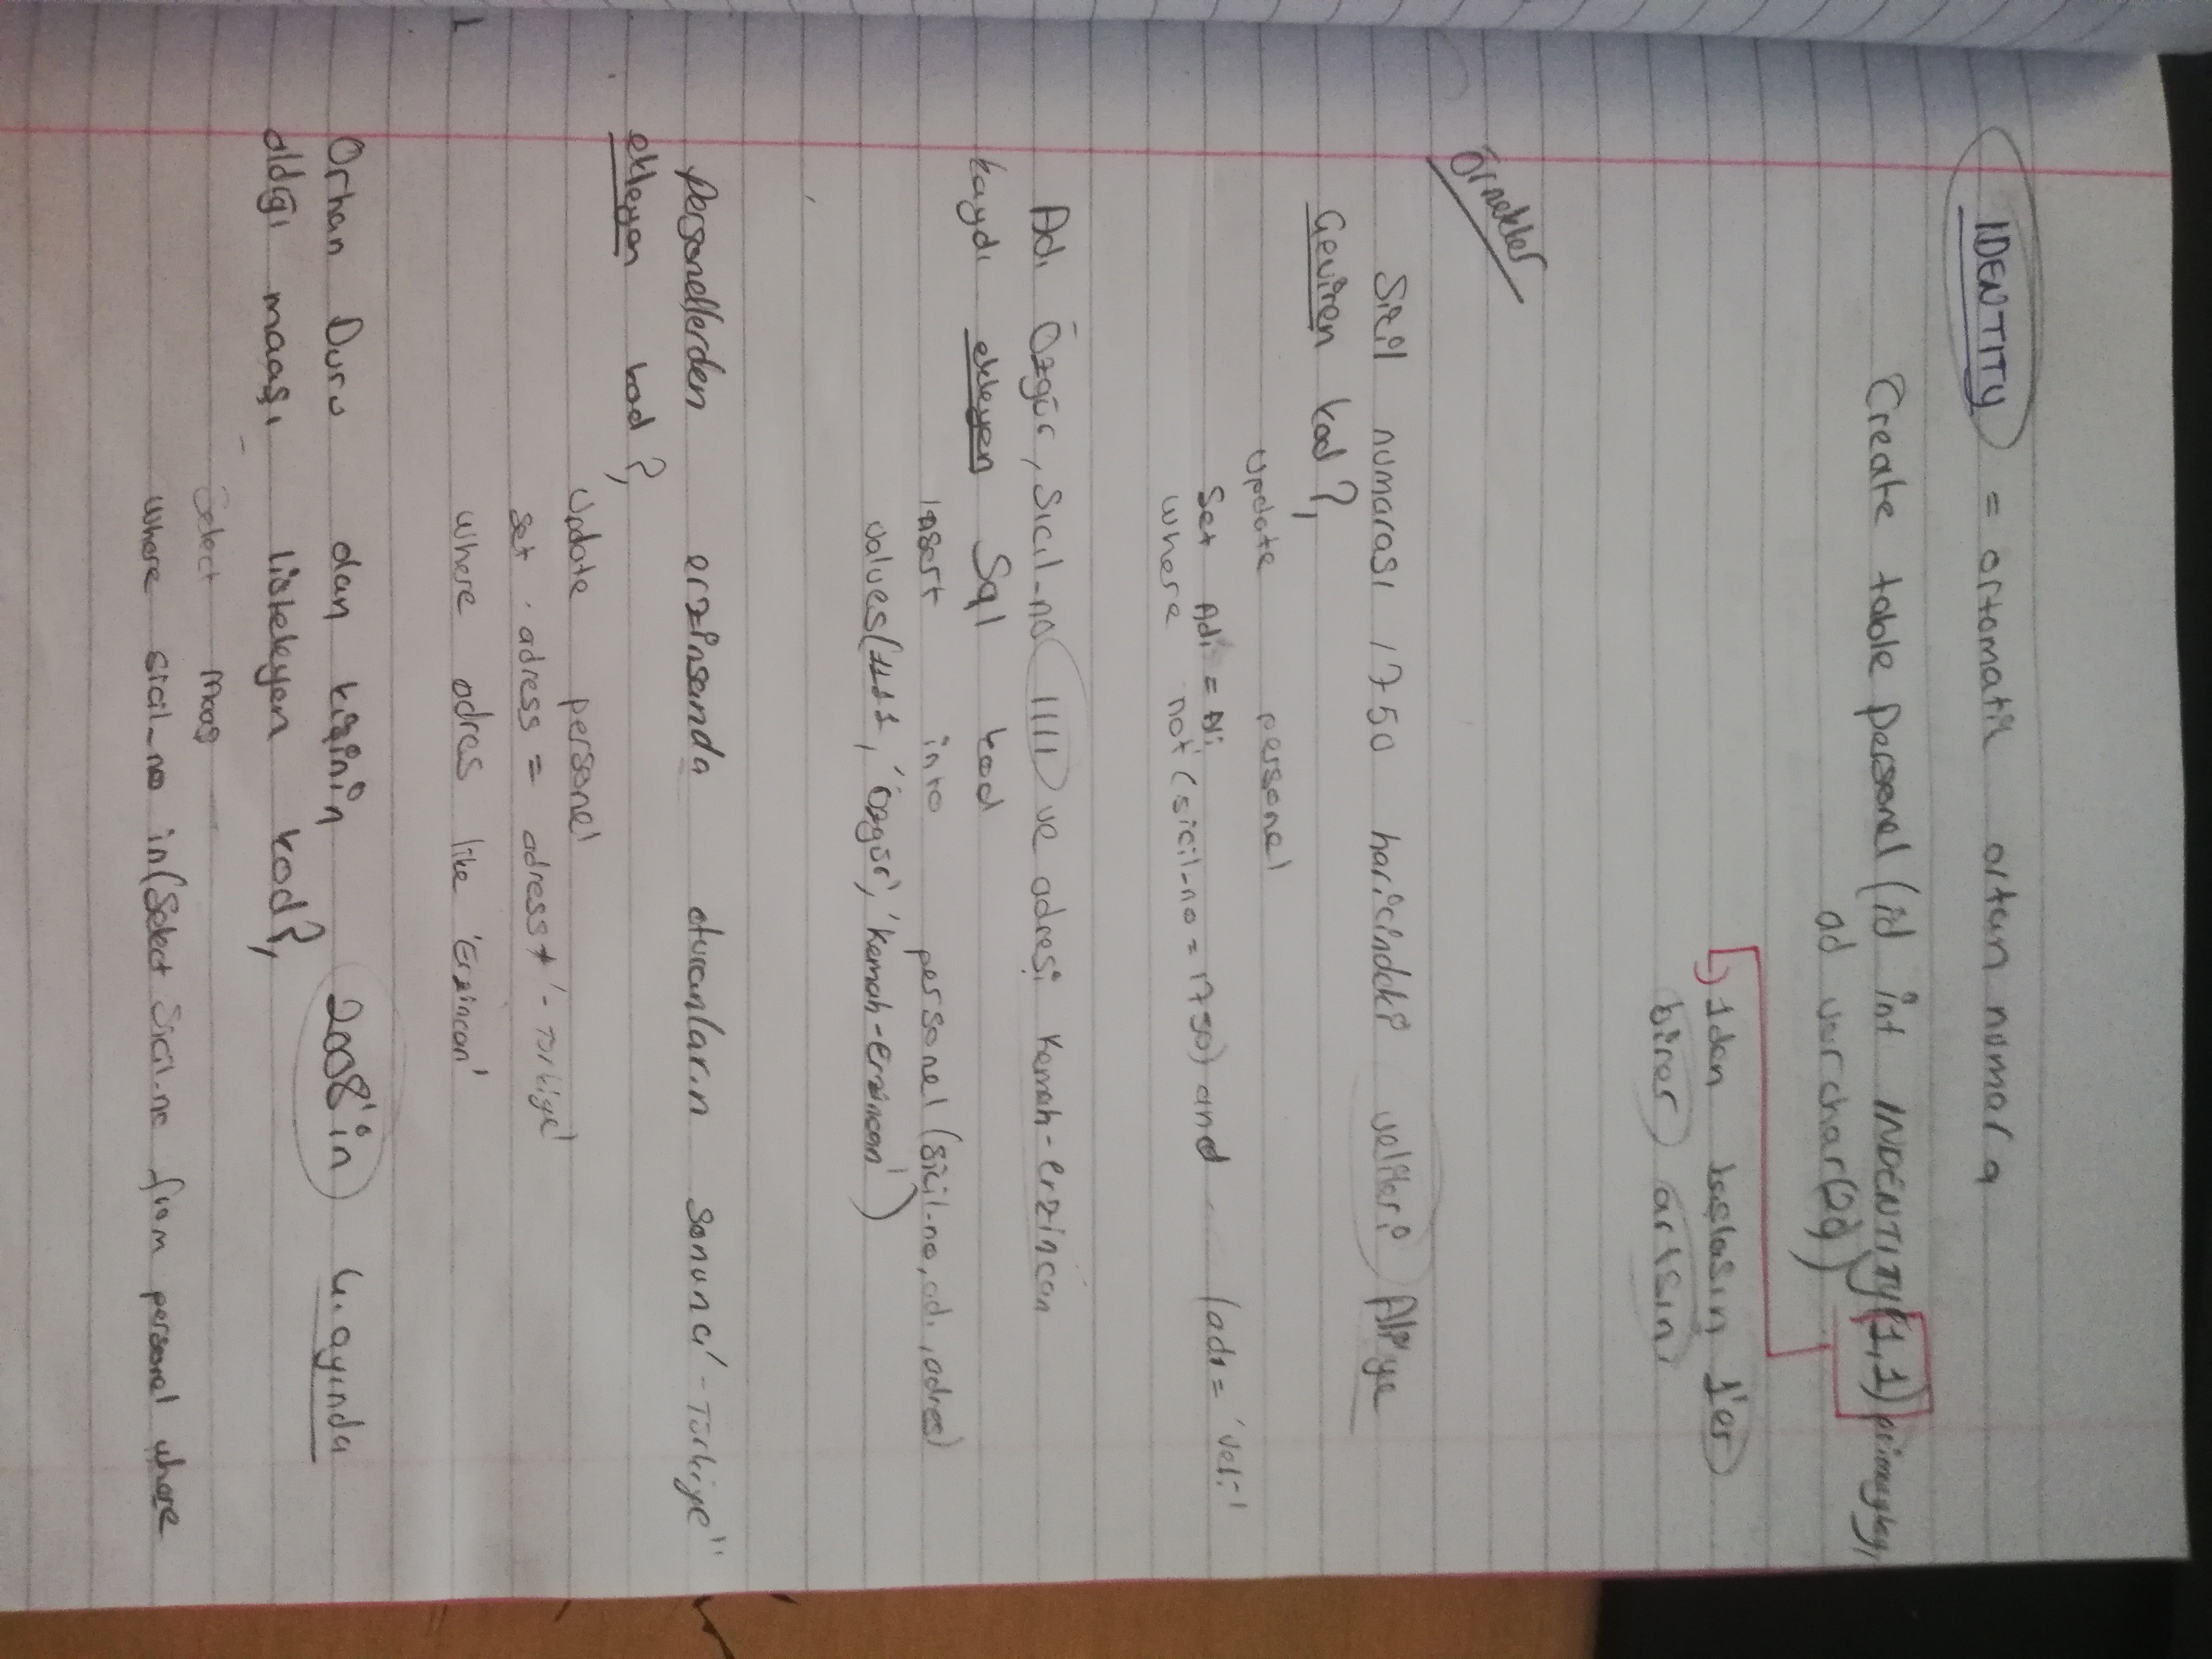 IDENTITY = ortomatik ortan numara
Create table personel (id int INDENTITY(1,1) primary key,
ad varchar(20)
1den başlasın 1'er
birer artsın
Örnekler
Sicil numarası 1750 haricindeki velileri Ali'ye
Çeviren kod?,
Update personel
Set Adı = Ali
where not (sicil-no = 1750) and (adı = 'Veli'
Adı Özgür, Sicil-no 1111 ve adresi Kemah-erzincan
kaydı ekleyen Sql kod
Insert into personel (sicil-no, adı, adres)
values(1111, 'Özgür', 'Kemah-Erzincan')
Personellerden erzinsanda oturanların sonuna '-Türkiye"
ekleyen kod?,
Update personel
set adress = adress + '-Türkiye'
where adres like 'Erzincan'
Orhan Duru olan kişinin 2008'in 4. ayında
aldığı maaşı listeleyen kod?,
Select Maaş
where sicil-no in(Select Sicil-no from personel where